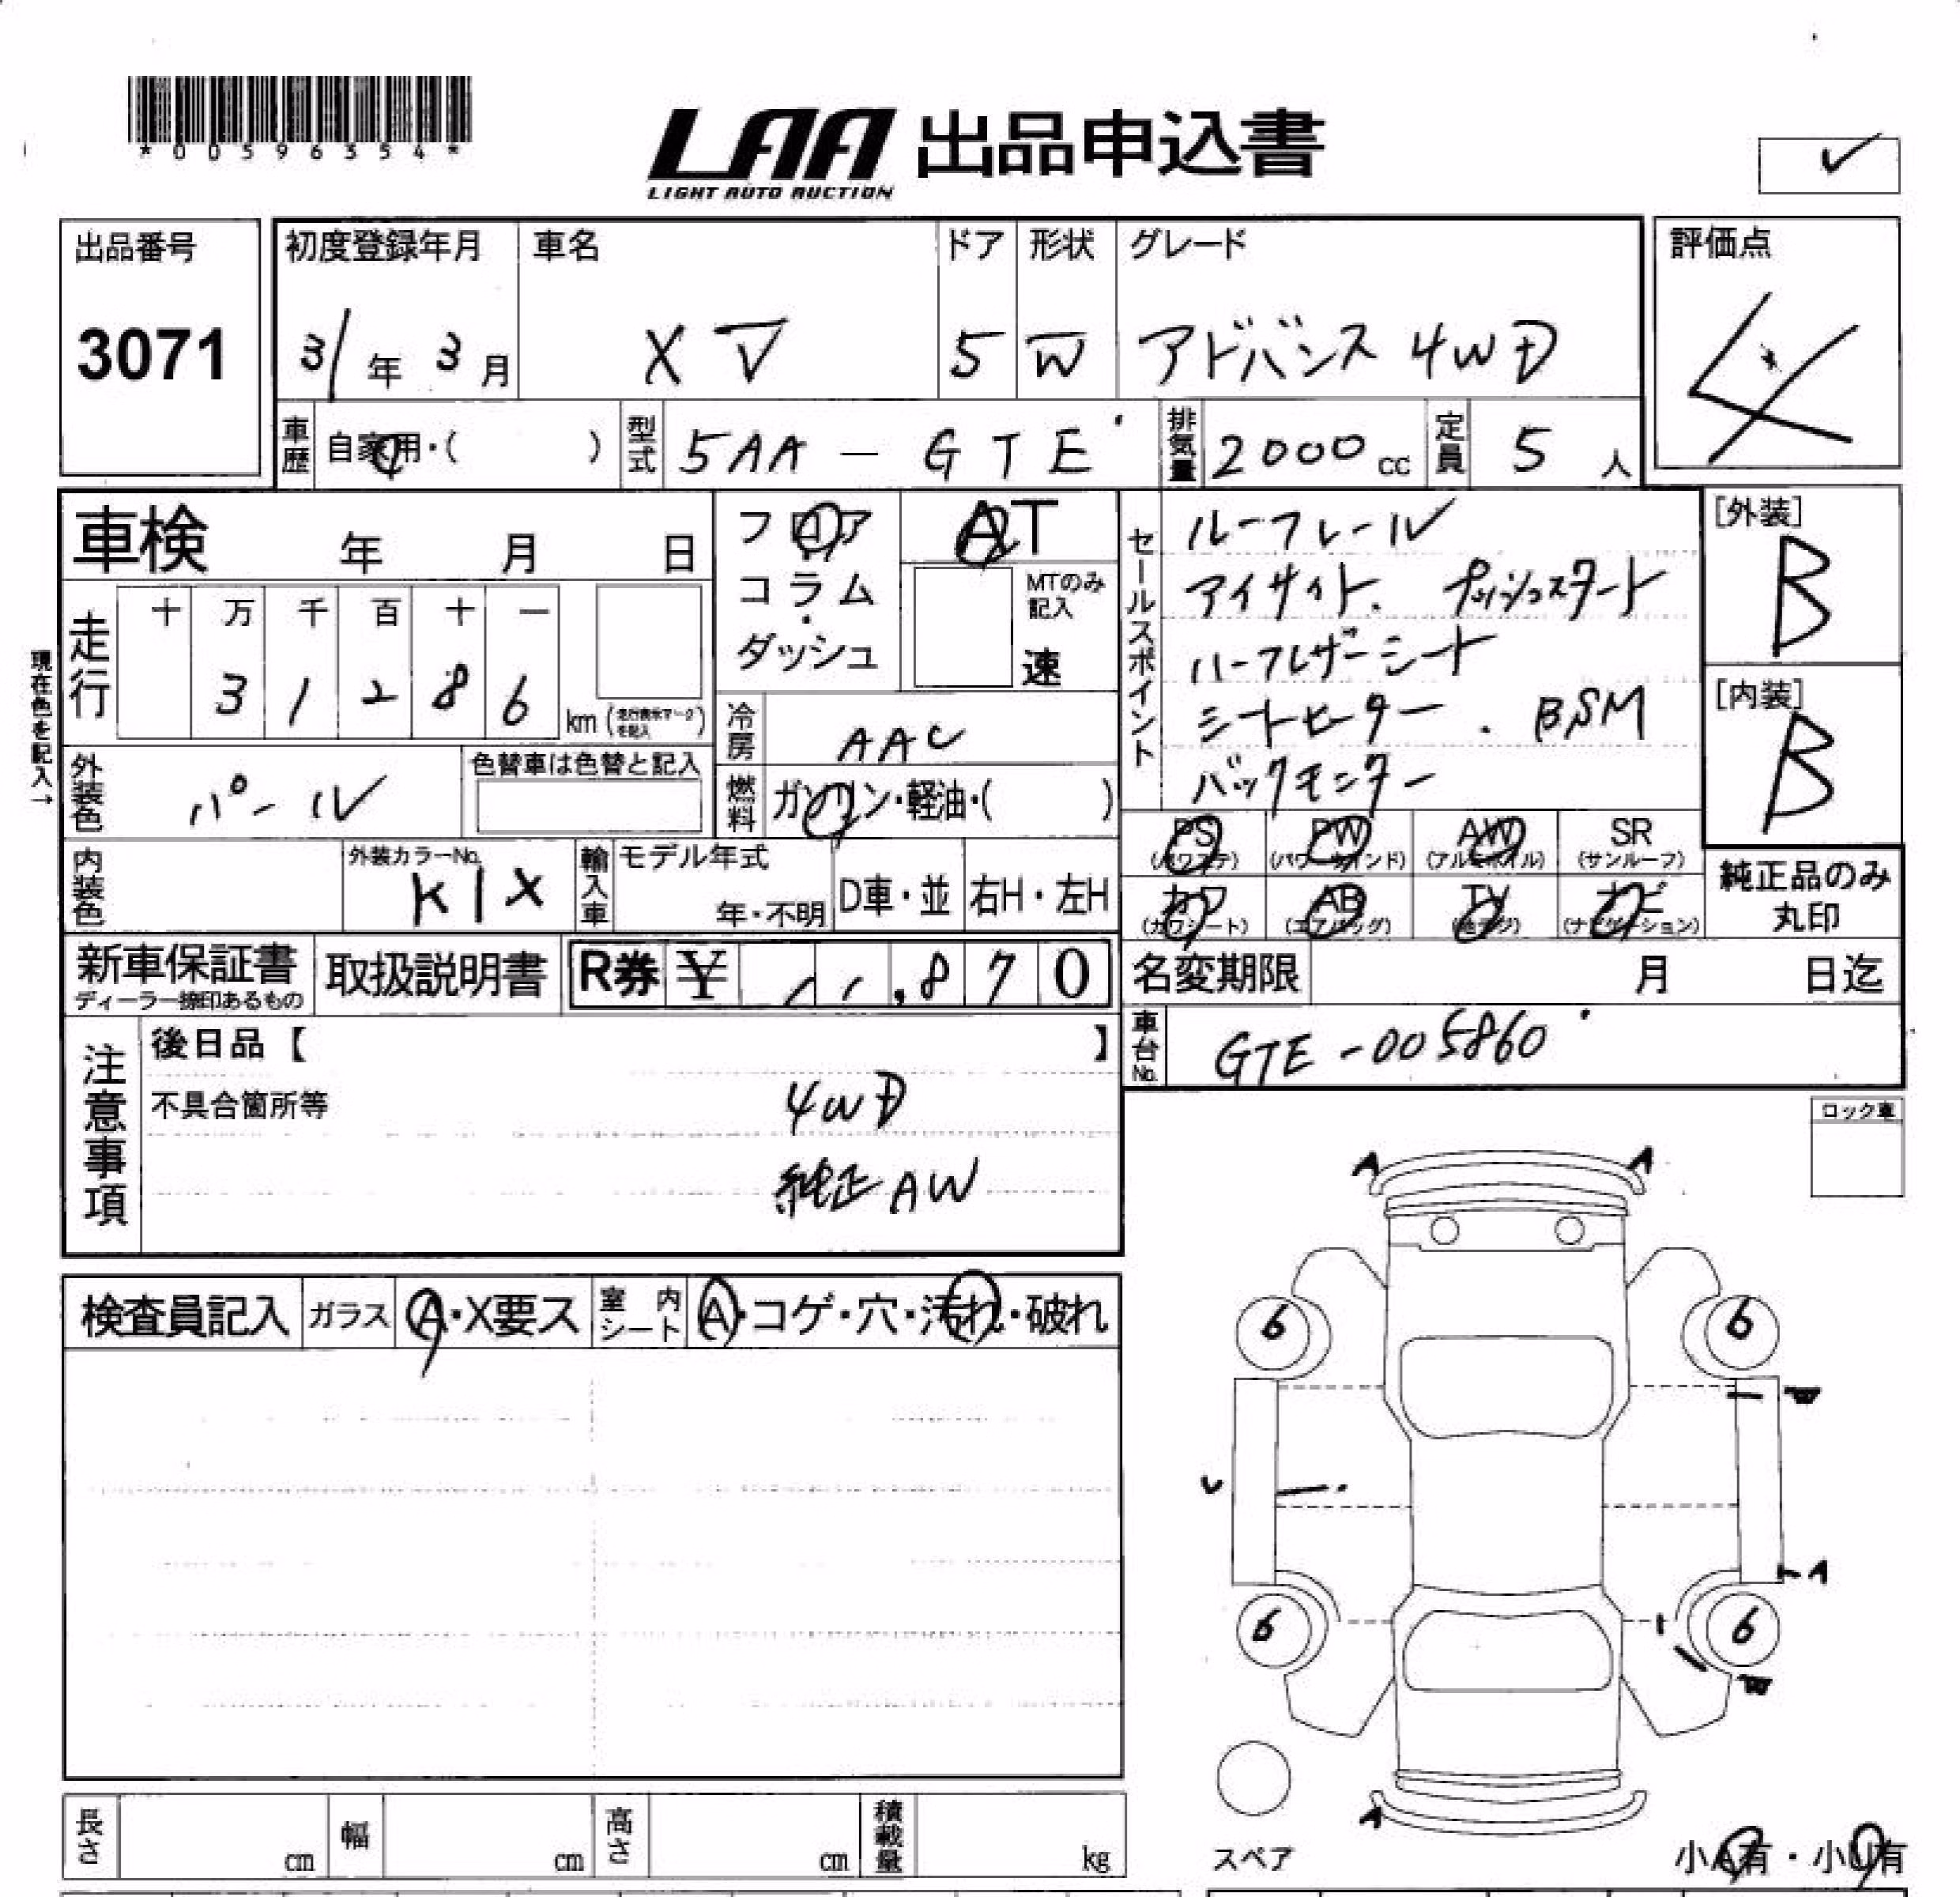 *00596354*
LAA 出品申込書
LIGHT AUTO AUCTION
✓
出品番号
3071
初度登録年月
31年 3月
車名
XV
ドア
5
形状
W
グレード
アドバンス 4WD
評価点
4
車歴 自家用・( )
型式 5AA-GTE
排気量 2000cc
定員 5人
車検 年 月 日
フロア
コラム
ダッシュ
AT
MTのみ記入
速
セールスポイント
ルーフレール
アイサイト. プッシュスタート
ハーフレザーシート
シートヒーター . BSM
バックモニター
[外装]
B
[内装]
B
現在色を記入→
走行
十 万 千 百 十 一
3 1 2 8 6 km (走行表示マークを記入)
冷房 AAC
燃料 ガソリン・軽油・( )
外装色 パール
色替車は色替と記入
内装色
外装カラーNo.
K1X
輸入車
モデル年式
年・不明
D車・並
右H・左H
PS (パワステ)
PW (パワーウインド)
AW (アルミホイル)
SR (サンルーフ)
カワ (カワシート)
AB (エアバッグ)
TV (地デジ)
ナビ (ナビゲーション)
純正品のみ
丸印
新車保証書
ディーラー捺印あるもの
取扱説明書
R券 ¥ , 8 7 0
名変期限 月 日迄
車台No. GTE-005860
注意事項
後日品【 】
不具合箇所等
4WD
純正AW
ロック車
検査員記入
ガラス A・X要ス
室内シート A・コゲ・穴・汚れ・破れ
A A
6 6
W
A
6 6
W
A
スペア
小A有・小U有
長さ cm
幅 cm
高さ cm
積載量 kg